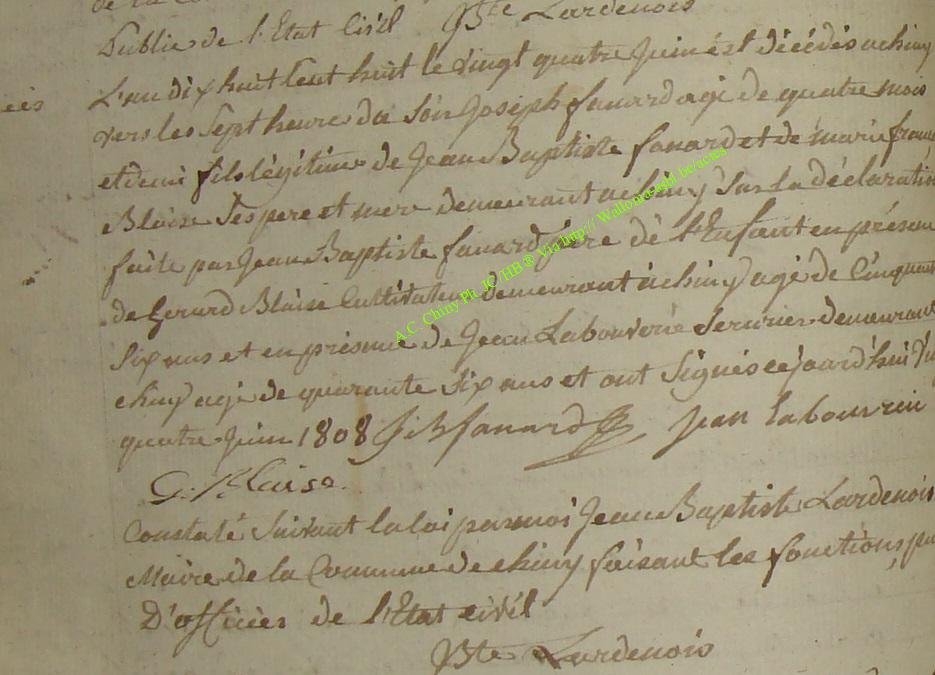 Publie de l'Etat Civil JBte Lardenois
L'an dix huit Cent huit le vingt quatre Juin est décédés a chiny
vers les Sept heure du Soir Joseph fanard agé de quatre mois
et demi fils légitime de Jean Baptiste fanard et de marie
Blaise Ses pere et mere demeurant a chiny Sur La déclaration
faite par Jean Baptiste fanard père de l'Enfant en présen
de Gerard Blaise Cultivateur demeurant a chiny agé de Cinquant
Six ans et en présence de Jean Labouverie Serurier demeurant
chiny agé de quarante Six ans et ont Signés cejourd'hui
quatre Juin 1808 J B fanard Jean Labouverie
G. Blaise
Constaté Suivant la loi par moi Jean Baptiste Lardenois
Maire de la Commune de chiny faisant les fonctions
D'officier de l'Etat civil
JBte Lardenois
A.C. Chiny Ph. JC HB® Via http://